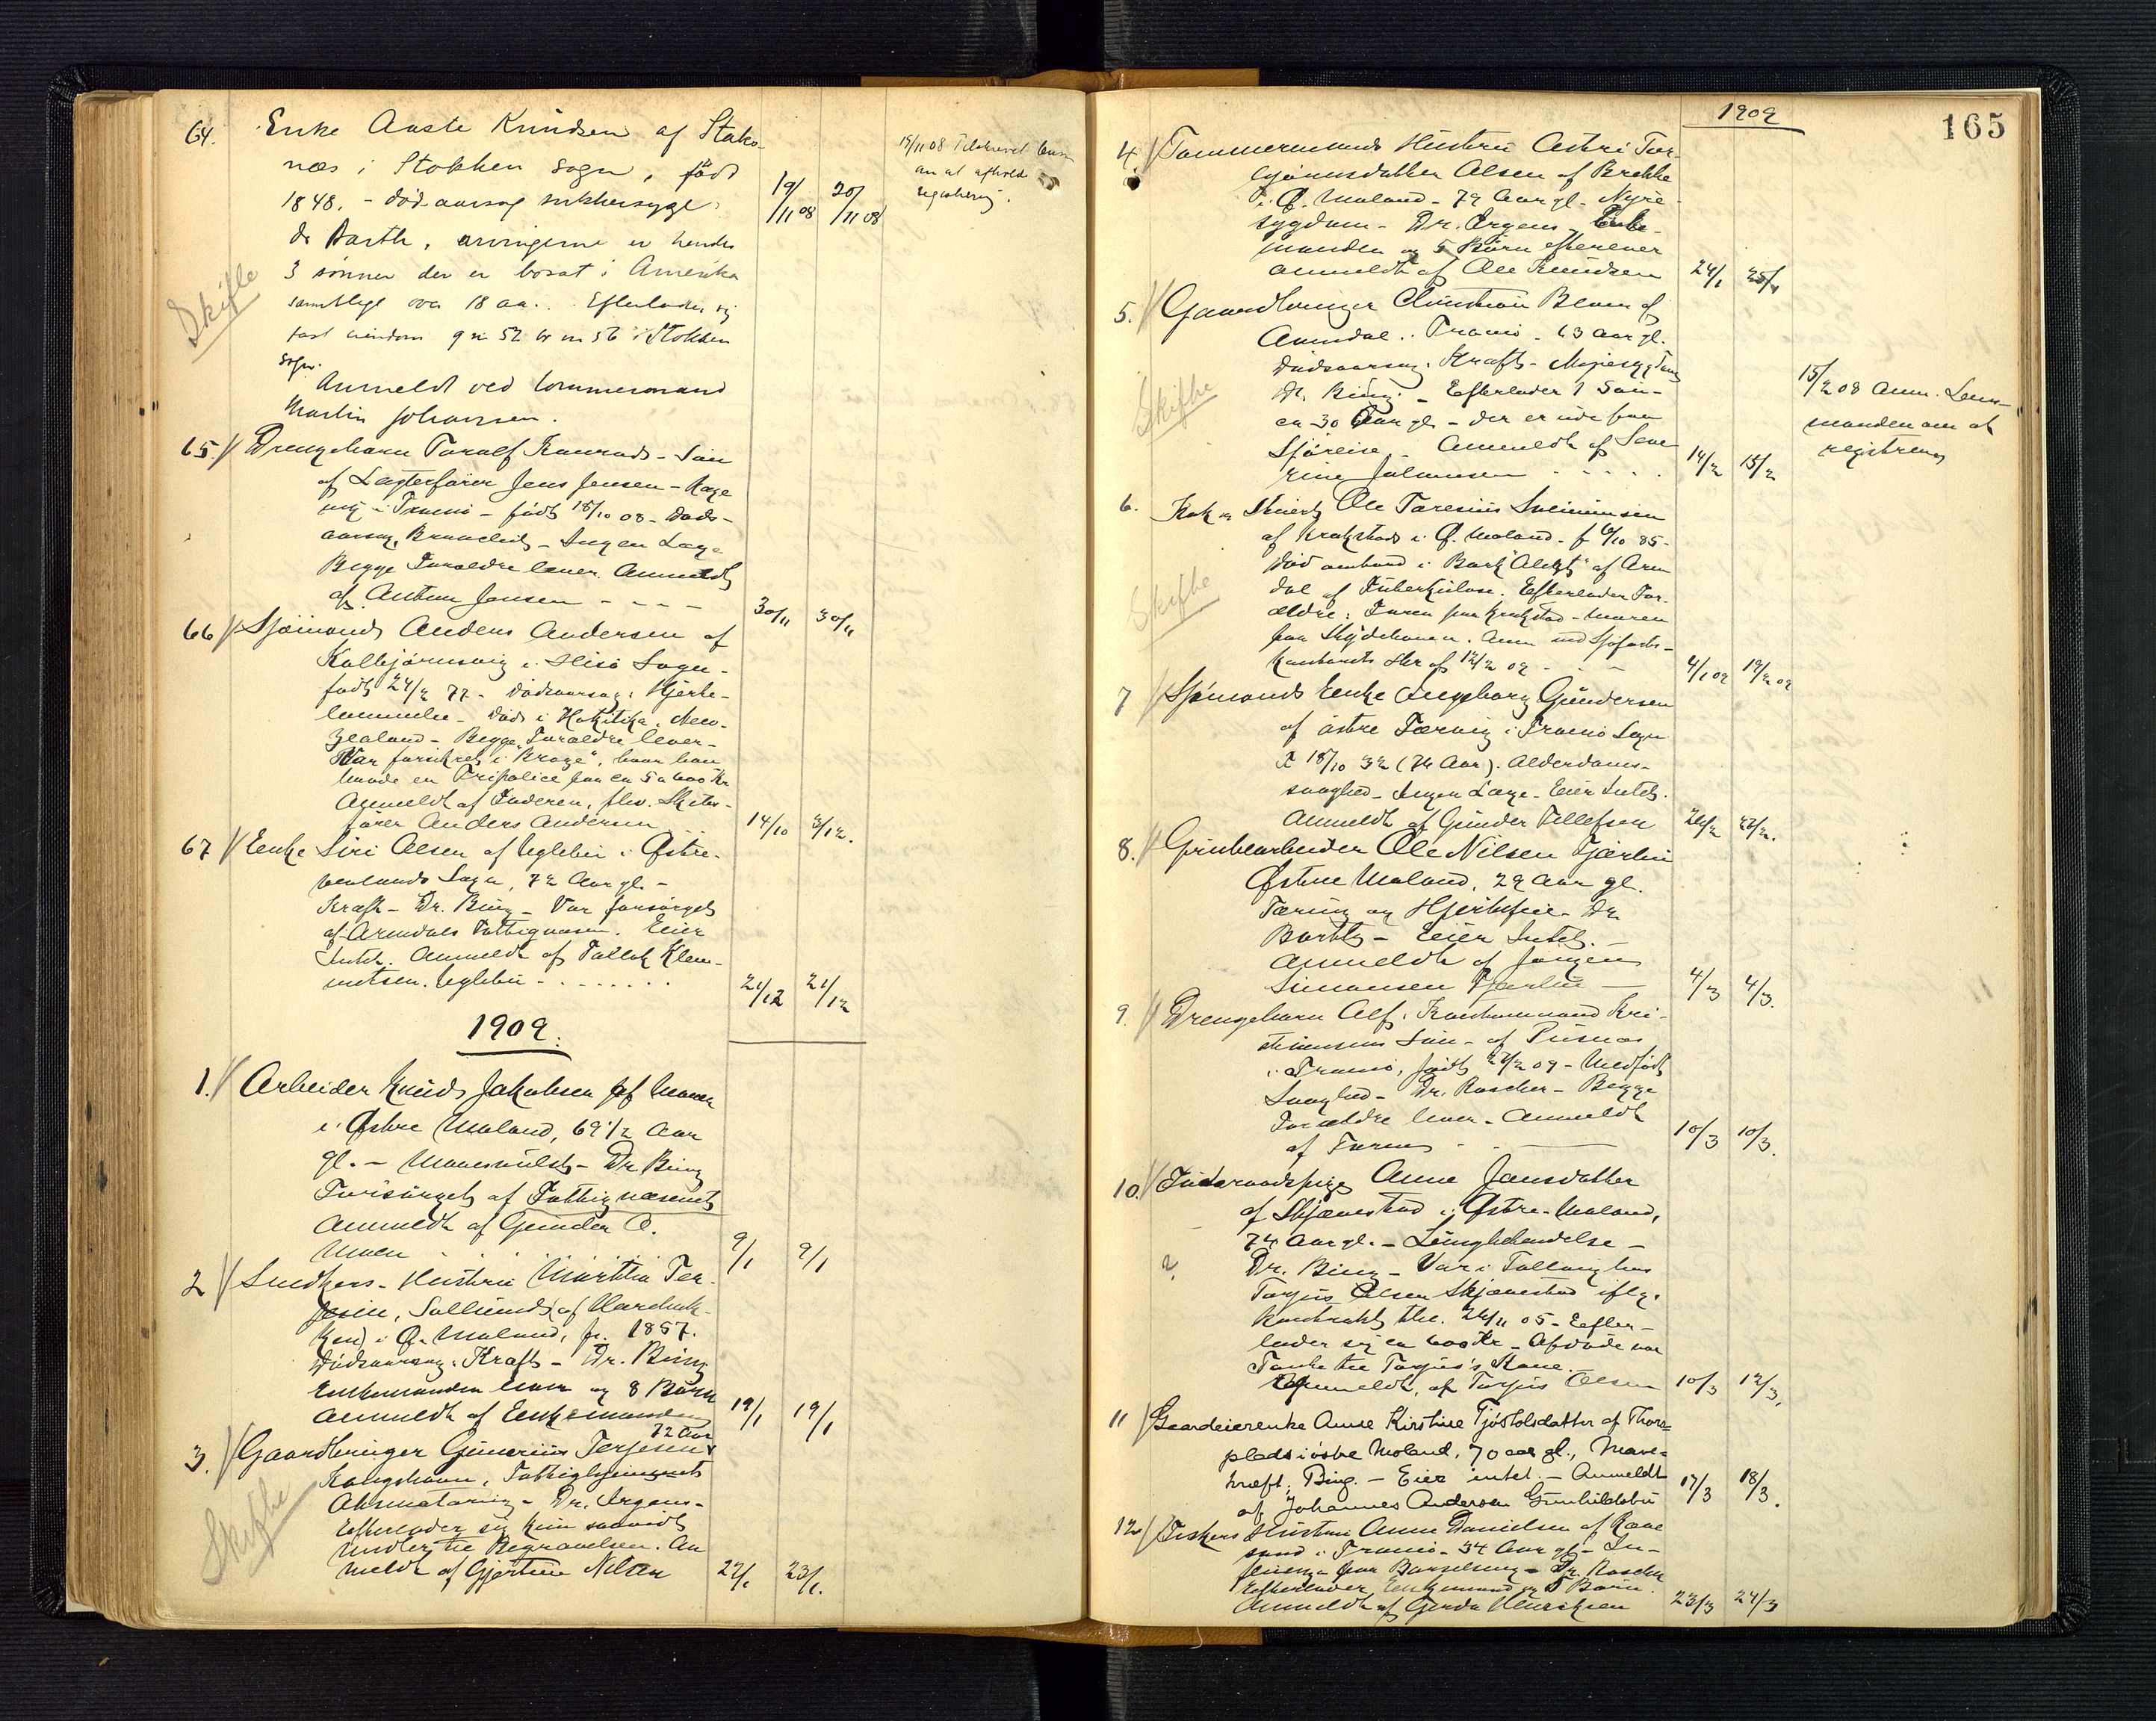 64. Enke Aaste Knudsen af Staks-
næs i Stokken sogn, født
1848. - Dødsaarsag sukkersyge.
Dr Barth, arvingerne er hendes
3 sønner der er bosat i Amerika
samtlige over 18 aar. Efterlader sig
fast eiendom g no 52 br no 56 i Stokken
sogn.
Anmeldt ved tømmermand
Martin Johansen.
19/11 08 20/11 08
19/11 08 Tilskrevet
om at afholde
registrering.
Skifte
65. Drengebarn Toralf Konrad - Søn
af Lagterfører Jens Jensen - Kage
vig i Tromø - født 18/10 08 - Døds-
aarsag, Bronchit - Ingen Læge
Begge Forældre lever. Anmeldt
af Anton Jensen - - - -
30/11 30/11
66 Sjømand Anders Andersen af
Kolbjørnsvig i Hisø Sogn -
født 24/2 77 - Dødsaarsag: Hjerte-
lammelse - Død i Hokitika, New-
Zealand - Begge Forældre lever -
Var forsikret i "Brage", hvor han
havde en Fripolice paa ca 5 a 600 Kr
Anmeldt af Faderen, fhv. Skibs-
fører Anders Andersen
14/10 3/12.
67 Enke Siri Olsen af Uglebu i Østre-
molands Sogn, 72 Aar gl. -
Kræft - Dr. Bing - Var forsørget
af Arendals Fattigvæsen. Eier
Intet. Anmeldt af Tallak Klem-
metsen. Uglebu - . . . . . .
21/12 21/12
1909.
1. Arbeider Knud Jakobsen af Moen
i Østre Moland, 69 1/2 Aar
gl. - Mavesvulst - Dr Bing
Forsørget af Fattigvæsenet
Anmeldt af Gunder O.
Moen
9/1 9/1
2 Snedkers - Hustru Marthe Ter-
jesen, Sollund (af
i Ø. Moland, f. 1857.
Dødsaarsag: Kræft - Dr. Bing
Enkemanden lever og 8 Børn
Anmeldt af Enkemanden
19/1 19/1
3. Gaardbruger Gunerius Terjesen 72 Aar
Kongshavn, Fattighjemmet
Dr. Irgens -
Efterlader sig kun saavidt
midler til Begravelsen. An
meldt af Gjertine Nilsen
22/1 23/1.
Skifte
1909
165
4. Tømmermands Hustru Astri Tor-
Olsen af Brekke
i Ø. Moland - 79 Aar gl - Nyre-
sygdom - Dr. Irgens - Enke-
manden og 5 Børn efterlever
anmeldt af Ole Knudsen
24/1 25/1
5. Gaardbruger Christian Blom af
Arendal i Tromø - 63 Aar gl.
Dødsaarsag: Kræft - Mavesygdom
Dr. Bing. - Efterlader 1 Søn -
ca 30 Aar gl - der er ude paa
Sjøreise. Anmeldt af Seve
rine Johnsen - - - -
14/2 15/2
15/2 08 Anm. Lens-
manden om at
registrere
Skifte
6. Kok og Stuert Ole Taresius Sveinunsen
af Krokstad i Ø. Moland - f 6/10 85 -
Død ombord i Bark "Alekto" af Aren
dal af Tuberkulose. Efterlader For-
ældre: Faren paa Krokstad - moren
paa Skydehaven. Anm ved Sjøfarts-
kontorets skr af 12/2 09 -
4/1 09 19/2 09
Skifte
7 Sjømands Enke Ingeborg Gundersen
af østre Tærvig i Tromø Sogn
f 18/10 32 (76 Aar). Alderdoms-
svaghed - Ingen Læge - Eier Intet.
Anmeldt af Gunder Tellefsen
26/2 27/2.
8. Grubearbeider Ole Nilsen Fjærbu
Østre Moland, 29 Aar gl.
Tæring og Hjertefeil - Dr.
Barth - Eier Intet. -
Anmeldt af Jørgen
Simonsen Fjærbu -
4/3 4/3.
9. Drengebarn Alf, Kristi-
ansens Søn - af Pusnes
i Tromø, født 27/2 09 - Medfødt
Svaghed - Dr. Roscher - Begge
Forældre lever - Anmeldt
af Faren -
10/3 10/3.
10. Føderaadspige Anne Jansdatter
af Skjævestad i Østre - Moland,
74 Aar gl. - Lungebetændelse -
Dr. Bing - Var i hos
Torjus Olsen Skjævestad iflg.
Kontrakt thl. 24/11 05 - Efter-
lader sig ca 600 Kr - Afdøde var
Tante til Torjus's Kone. -
Anmeldt, af Torjus Olsen
10/3 12/3.
?
11 Gaardeierenke Anne Kirstine Tjøstolsdatter af Thors-
plads i østre Moland, 70 aar gl., Mave-
kræft, Bing. - Eier intet. - Anmeldt
af Johannes Andersen Gunhildsbu
17/3 18/3.
12. Fiskers Hustru Anna Danielsen af Ræve
sand i Tromø - 34 Aar gl - In-
fluenza paa Barselseng - Dr. Roscher
Efterlader Enkemand og 5 Børn.
Anmeldt af Gerda Henriksen
23/3 24/3